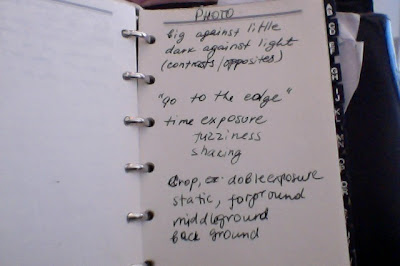 PHOTO
big against little
dark against light
(contrasts/opposites)
"go to the edge"
time exposure
fuzziness
shaking
Crop, dobleexposure
static, forground
middleground
back ground